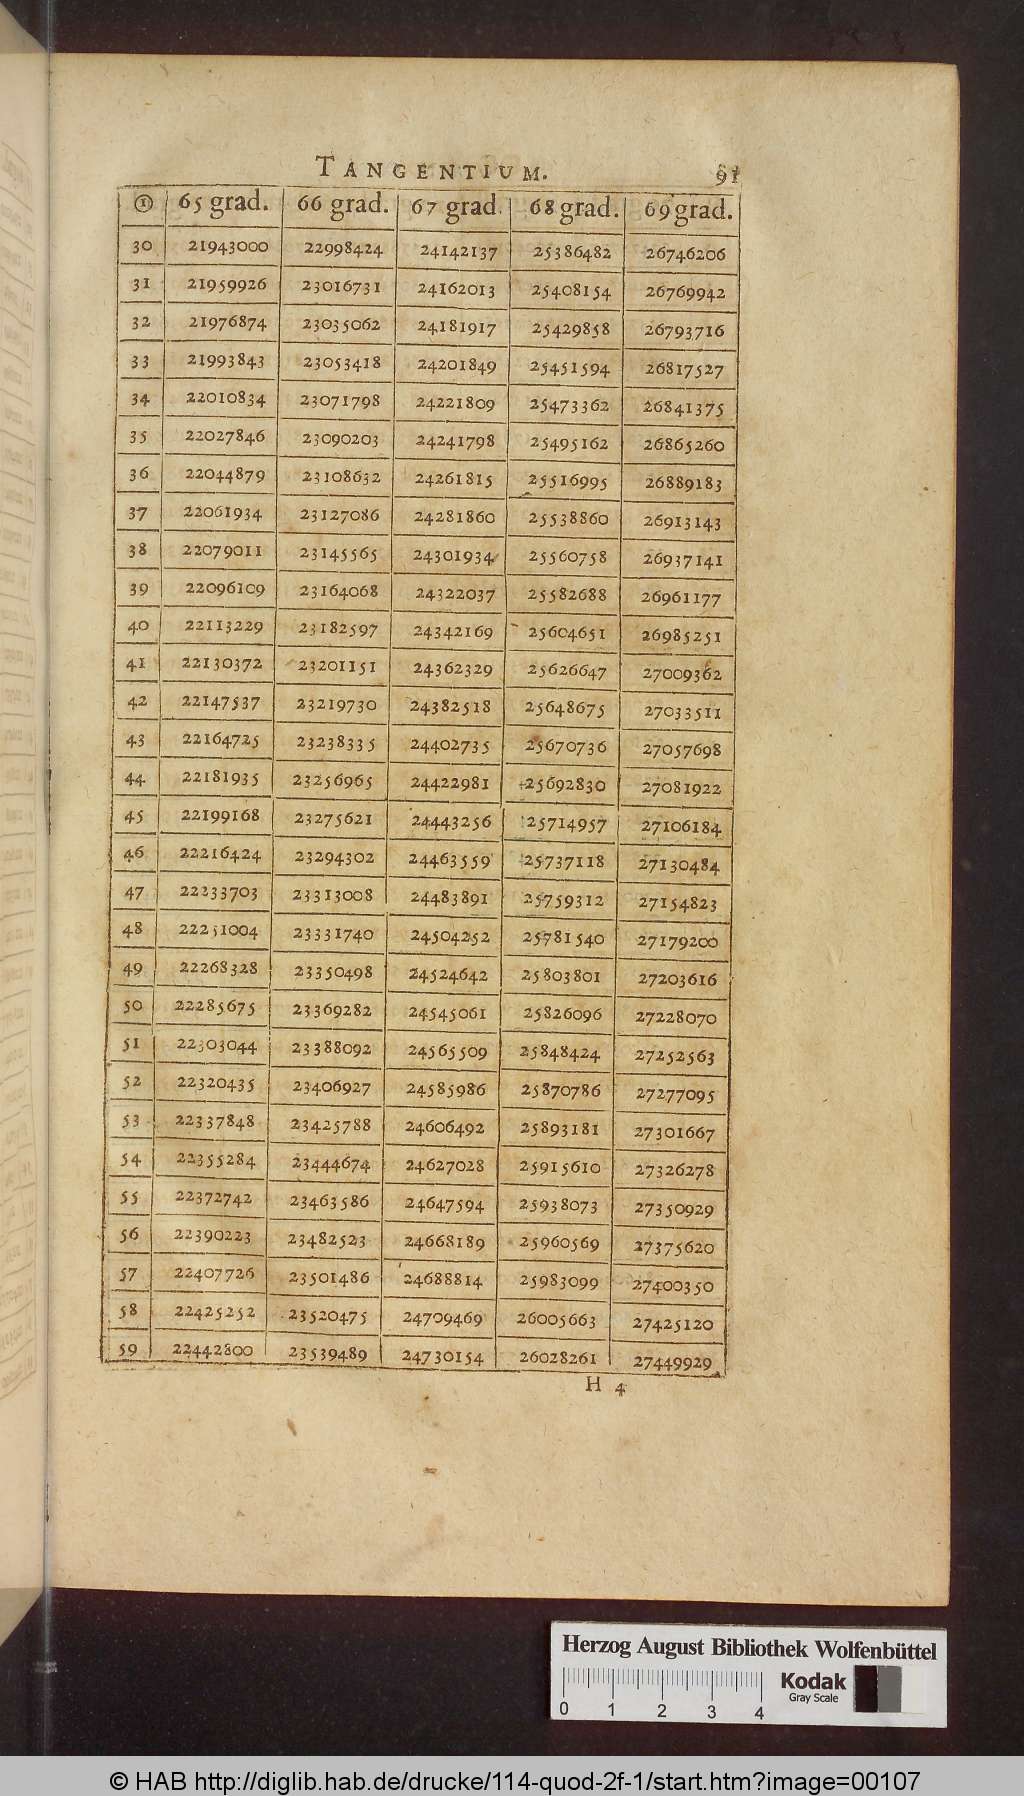 TANGENTIUM. 91
① 65 grad. 66 grad. 67 grad. 68 grad. 69 grad.
30 21943000 22998424 24142137 25386482 26746206
31 21959926 23016731 24162013 25408154 26769942
32 21976874 23035062 24181917 25429858 26793716
33 21993843 23053418 24201849 25451594 26817527
34 22010834 23071798 24221809 25473362 26841375
35 22027846 23090203 24241798 25495162 26865260
36 22044879 23108632 24261815 25516995 26889183
37 22061934 23127086 24281860 25538860 26913143
38 22079011 23145565 24301934 25560758 26937141
39 22096109 23164068 24322037 25582688 26961177
40 22113229 23182597 24342169 25604651 26985251
41 22130372 23201151 24362329 25626647 27009362
42 22147537 23219730 24382518 25648675 27033511
43 22164725 23238335 24402735 25670736 27057698
44 22181935 23256965 24422981 25692830 27081922
45 22199168 23275621 24443256 25714957 27106184
46 22216424 23294302 24463559 25737118 27130484
47 22233703 23313008 24483891 25759312 27154823
48 22251004 23331740 24504252 25781540 27179200
49 22268328 23350498 24524642 25803801 27203616
50 22285675 23369282 24545061 25826096 27228070
51 22303044 23388092 24565509 25848424 27252563
52 22320435 23406927 24585986 25870786 27277095
53 22337848 23425788 24606492 25893181 27301667
54 22355284 23444674 24627028 25915610 27326278
55 22372742 23463586 24647594 25938073 27350929
56 22390223 23482523 24668189 25960569 27375620
57 22407726 23501486 24688814 25983099 27400350
58 22425252 23520475 24709469 26005663 27425120
59 22442800 23539489 24730154 26028261 27449929
H 4
Herzog August Bibliothek Wolfenbüttel
Kodak
Gray Scale
0 1 2 3 4
© HAB http://diglib.hab.de/drucke/114-quod-2f-1/start.htm?image=00107